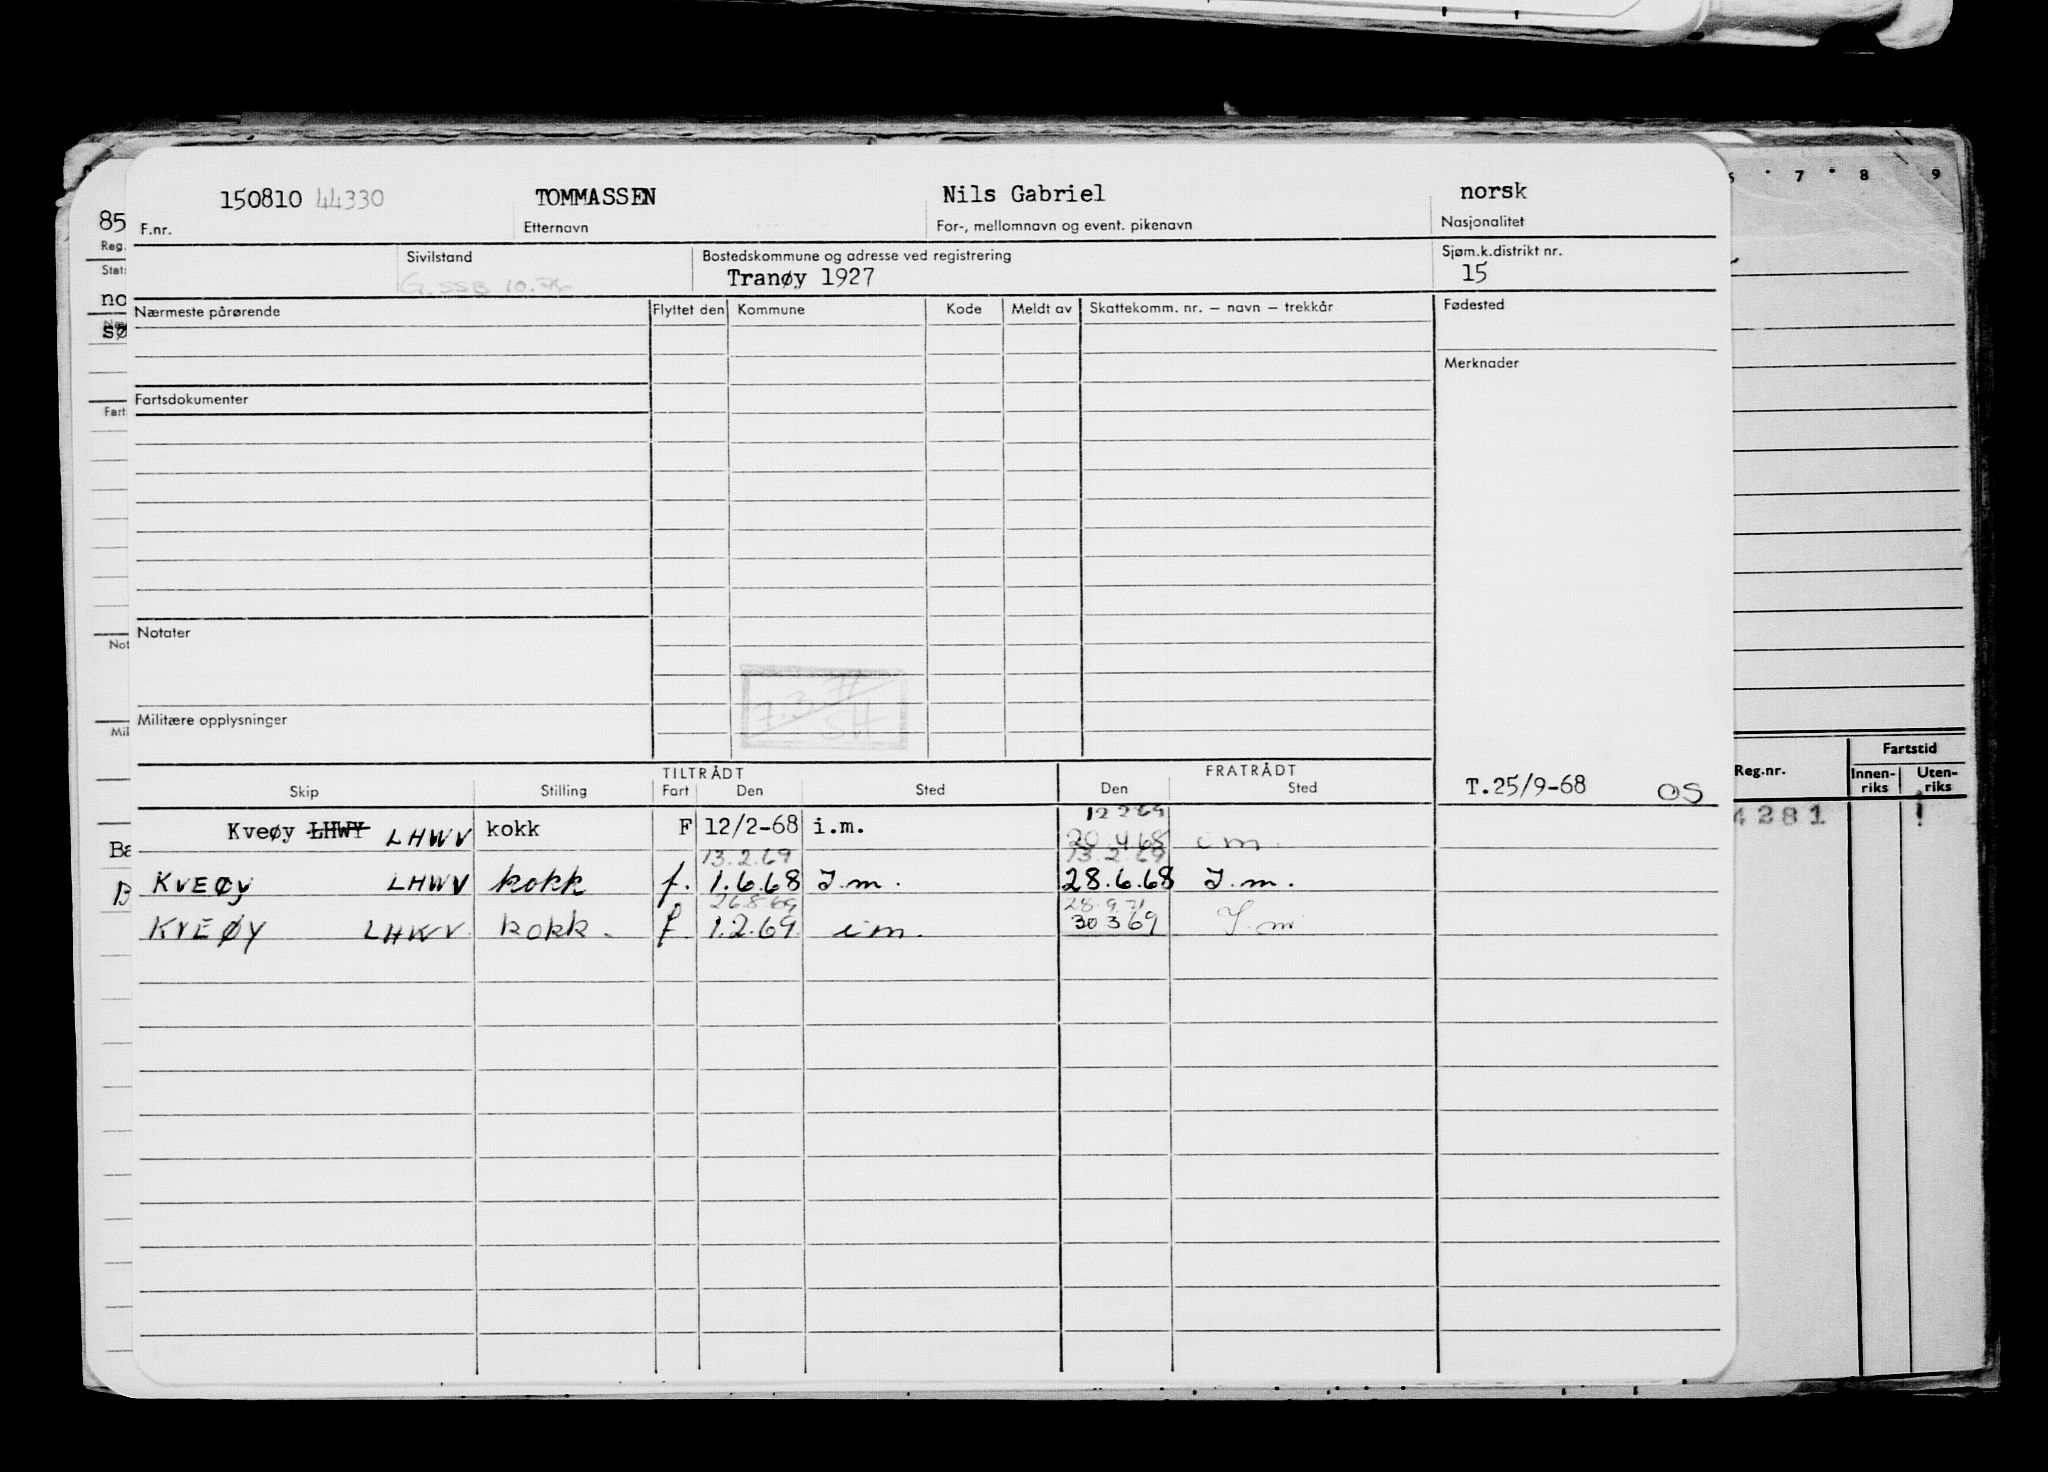 6 7 8 9
150810 44330 TOMMASSEN Nils Gabriel norsk
85 F.nr. Etternavn For-, mellomnavn og event. pikenavn Nasjonalitet
Reg. Sivilstand Bostedskommune og adresse ved registrering Sjøm.k.distrikt nr.
G. SSB 10.76 Tranøy 1927 15
no Nærmeste pårørende Flyttet den Kommune Kode Meldt av Skattekomm. nr. – navn – trekkår Fødested
sø
Merknader
Fart Fartsdokumenter
Not Notater
7.3.74
SH
Mil Militære opplysninger
TILTRÅDT FRATRÅDT
Skip Stilling Fart Den Sted Den Sted T.25/9-68 OS
Reg.nr. Fartstid
Innen-riks Uten-riks
4281
12 2 69
Kveøy LHWY LHWV kokk F 12/2-68 i.m. 20 4 68 i m.
13.2.69 13.2.69
KVEØY LHWV kokk f. 1.6.68 I.m. 28.6.68 I.m.
26.8.69 28.9.71
KVEØY LHWV kokk. f 1.2.69 i m. 30 3 69 I m